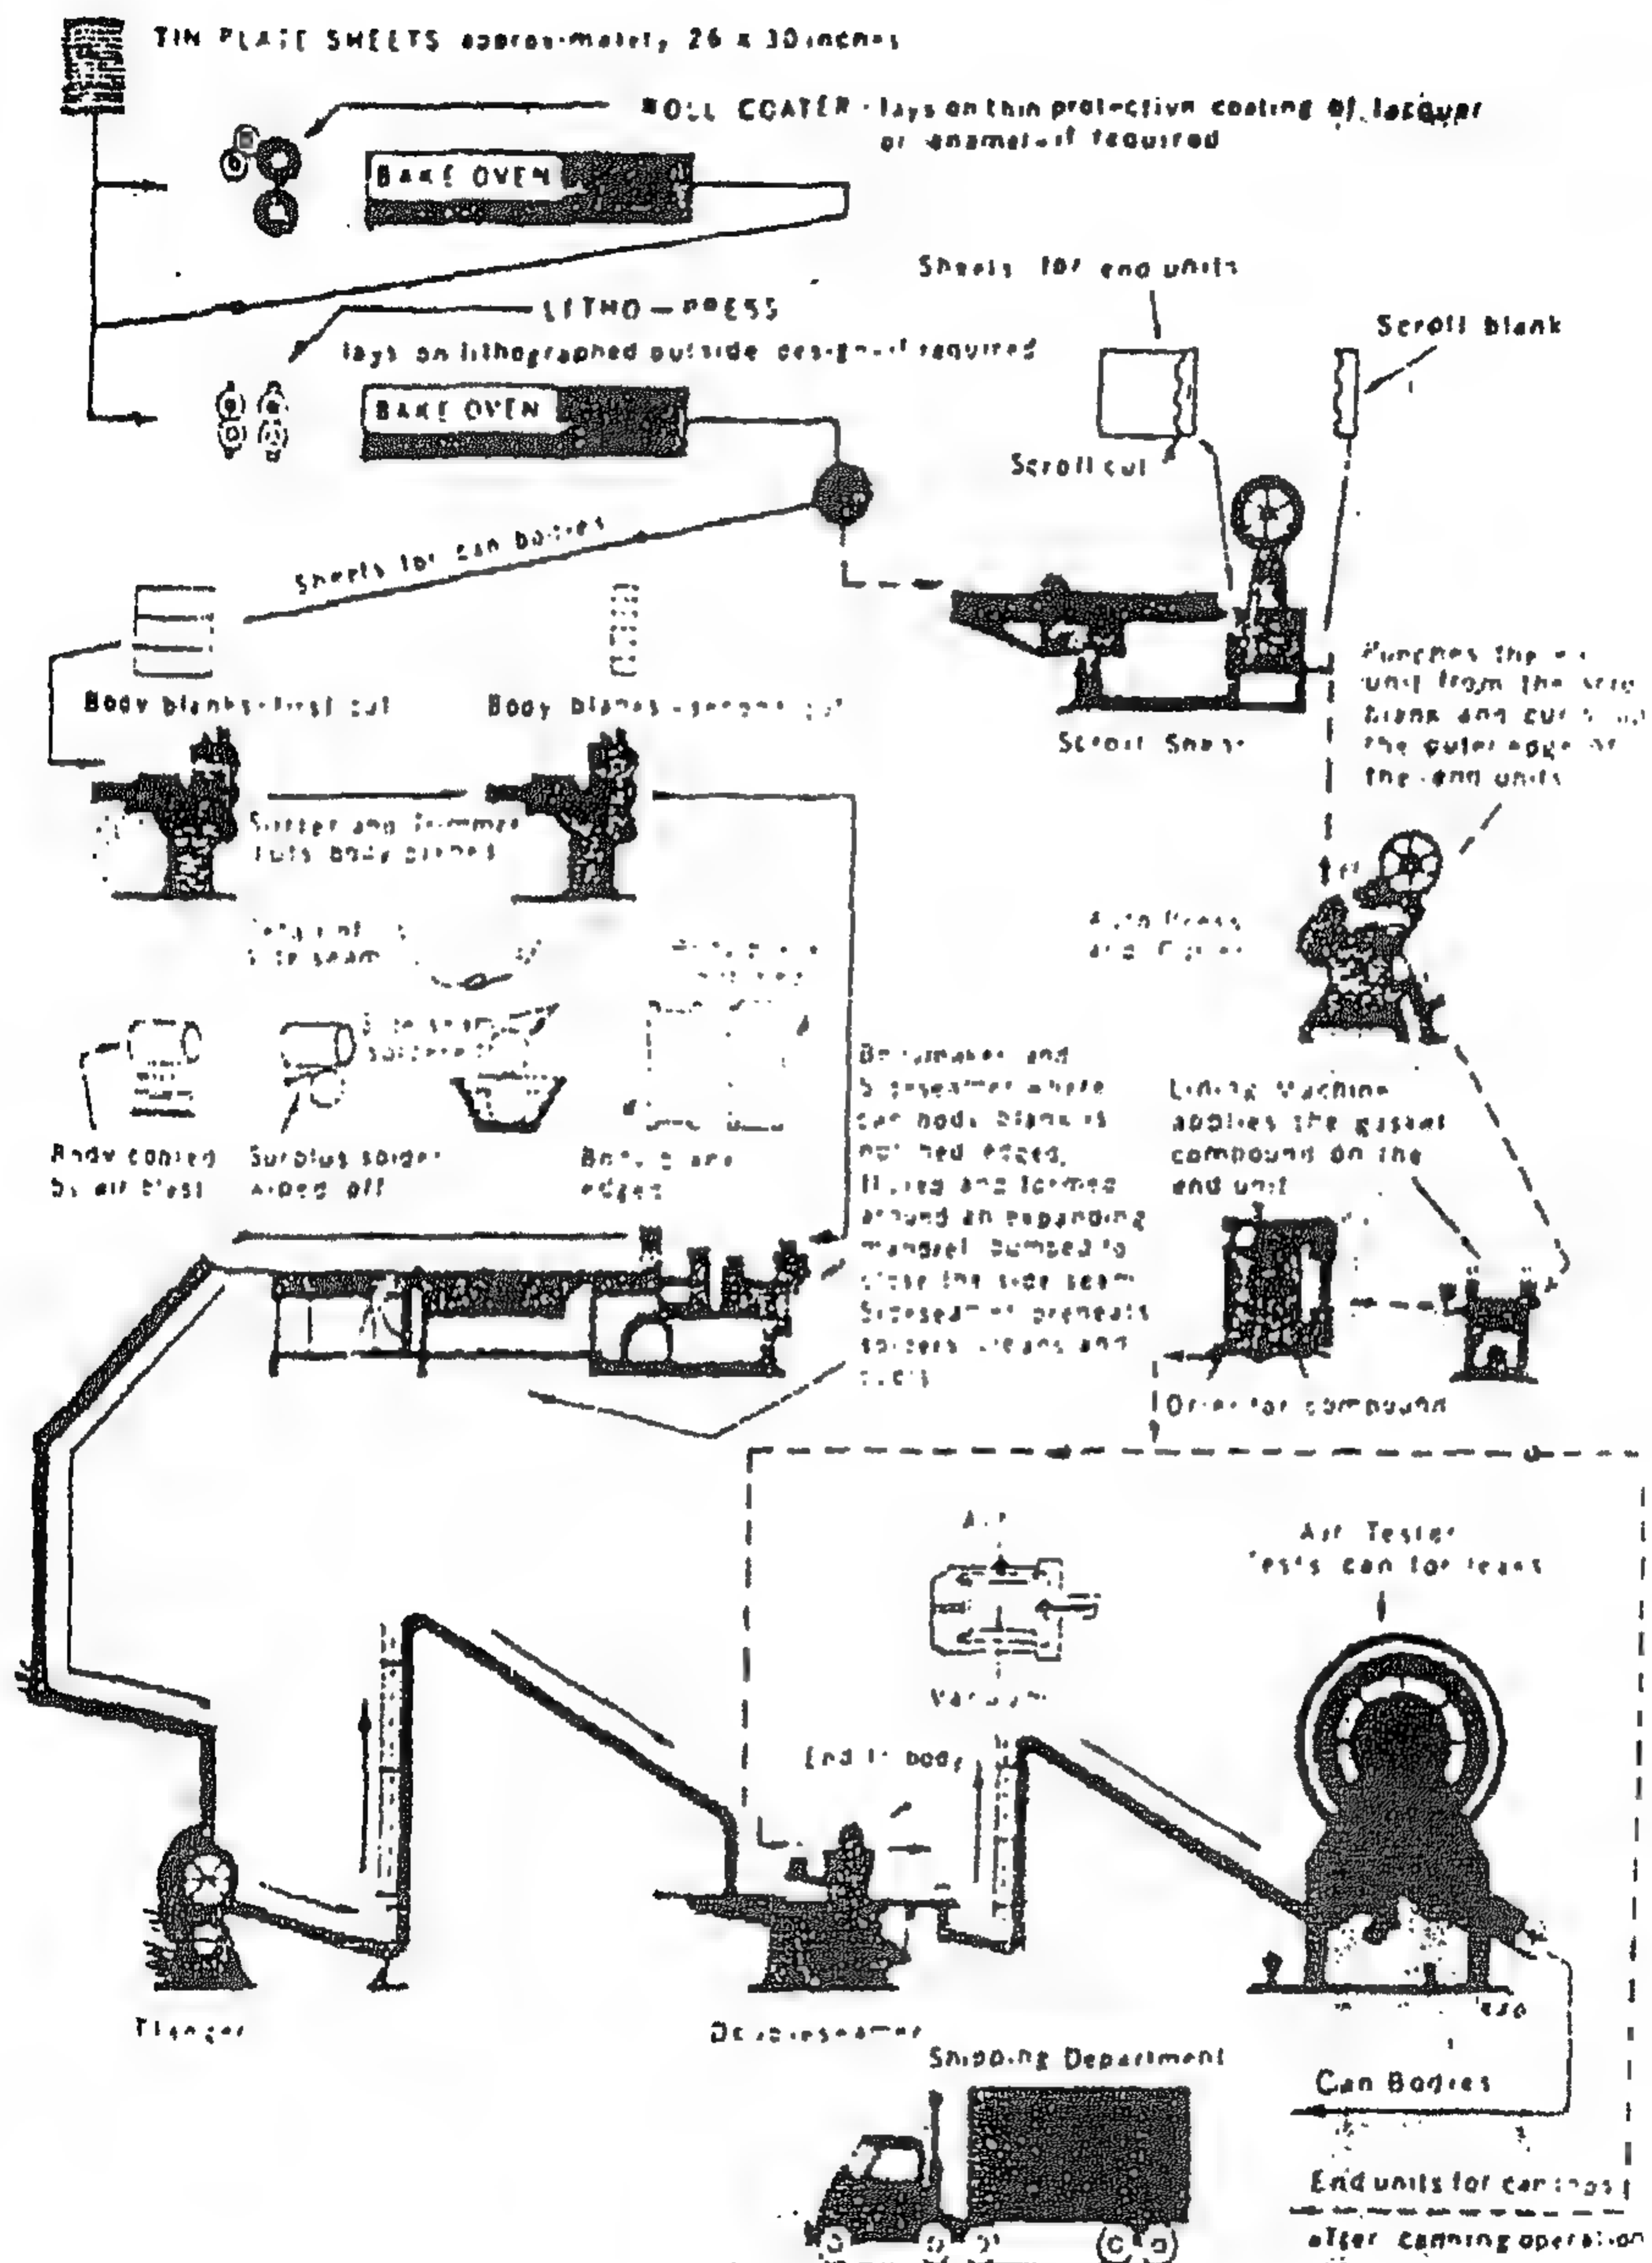 TIN PLATE SHEETS approximately 26 x 30 inches
ROLL COATER - lays on thin protective coating of lacquer
or enamel-if required
BAKE OVEN
Sheets for end units
LITHO-PRESS
Scroll blank
lays on lithographed outside design-if required
BAKE OVEN
Scroll cut
Sheets for can bodies
Body blanks-first cut
Body blanks-second cut
Scroll Shear
Punches the
unit from the
blank and
the outer edge of
the end units
Slitter and Trimmer
cuts body blanks
side seam
Auto Press
and
Side seam
soldered
Body cooled
by air blast
Surplus solder
wiped off
Body blank
edged
Bodymaker and
Sideseamer where
can body blank is
notched edged,
fluxed and formed
around an expanding
mandrel bumped to
close the side seam
Sideseamer preheats
solders cleans and
cools
Lining Machine
applies the gasket
compound on the
end unit
Drier for compound
Air
Air Tester
Tests can for leaks
Vacuum
End to body
Flanger
Doubleseamer
Shipping Department
Can Bodies
End units for can tops
after canning operation